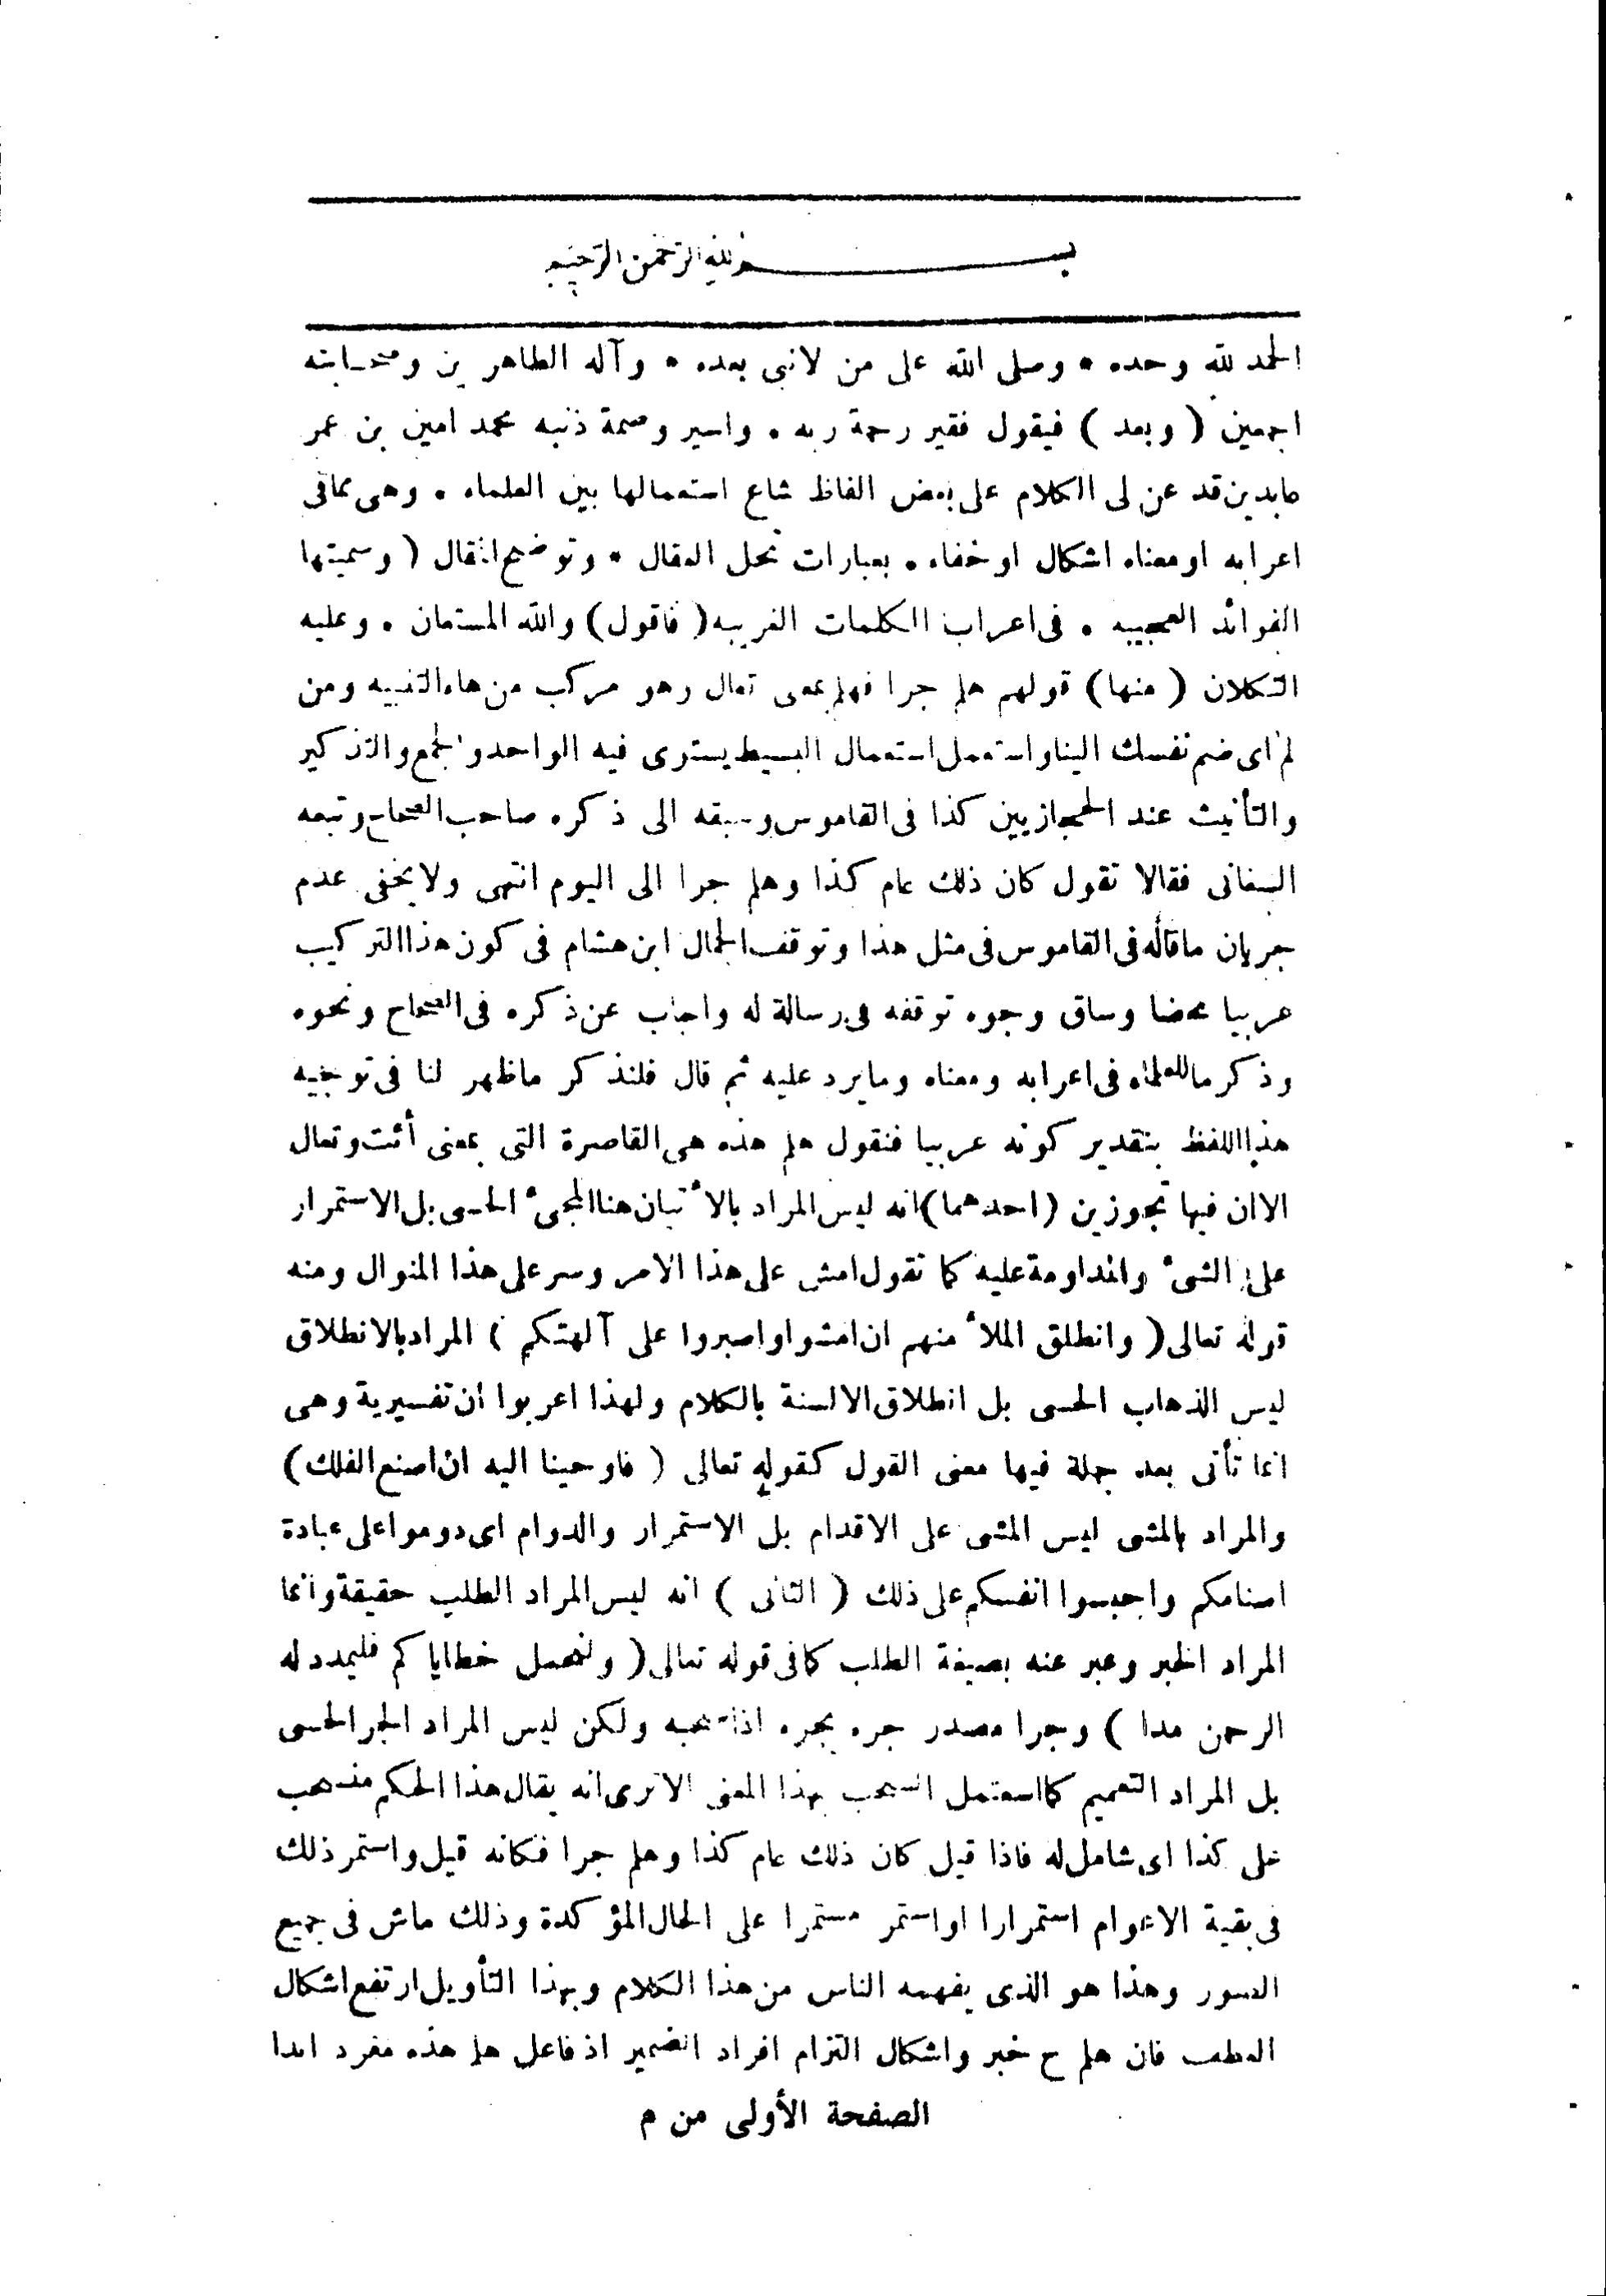 بسم الله الرحمن الرحيم
الحمد لله وحده * وصلى الله على من لا نبى بعده * وآله الطاهرين وصحابته
اجمعين ( وبعد ) فيقول فقير رحمة ربه * واسير وصمة ذنبه محمد امين بن عمر
عابدين قد عن لى الكلام على بعض الفاظ شاع استعمالها بين العلماء * وهى مما فى
اعرابه او معناه اشكال او خفاء * بعبارات تحل العقال * وتوضح المقال ( وسميتها
الفوائد العجيبه * فى اعراب الكلمات الغريبه ( فاقول ) والله المستعان * وعليه
التكلان ( منها ) قولهم هلم جرا فهلم بمعنى تعال وهو مركب من هاء التنبيه ومن
لم اى ضم نفسك الينا واستعمل استعمال البسيط يستوى فيه الواحد والجمع والتذكير
والتأنيث عند الحجازيين كذا فى القاموس وسبقه الى ذكره صاحب الصحاح وتبعه
الصغانى فقالا تقول كان ذلك عام كذا وهلم جرا الى اليوم انتهى ولا يخفى عدم
جريان ما قاله فى القاموس فى مثل هذا وتوقف الجمال ابن هشام فى كون هذا التركيب
عربيا محضا وساق وجوه توقفه فى رسالة له واجاب عن ذكره فى الصحاح ونحوه
وذكر ما للعلماء فى اعرابه ومعناه وما يرد عليه ثم قال فلنذكر ما ظهر لنا فى توجيه
هذا اللفظ بتقدير كونه عربيا فنقول هلم هذه هى القاصرة التى بمعنى أئت وتعال
الا ان فيها تجوزين ( احدهما ) انه ليس المراد بالأتيان هنا المجئ الحسى بل الاستمرار
على الشئ والمداومة عليه كما تقول امش على هذا الامر وسر على هذا المنوال ومنه
قوله تعالى ( وانطلق الملأ منهم ان امشوا واصبروا على آلهتكم ) المراد بالانطلاق
ليس الذهاب الحسى بل انطلاق الالسنة بالكلام ولهذا اعربوا ان تفسيرية وهى
انما تأتى بعد جملة فيها معنى القول كقوله تعالى ( فاوحينا اليه ان اصنع الفلك )
والمراد بالمشى ليس المشى على الاقدام بل الاستمرار والدوام اى دوموا على عبادة
اصنامكم واحبسوا انفسكم على ذلك ( الثانى ) انه ليس المراد الطلب حقيقة وانما
المراد الخبر وعبر عنه بصيغة الطلب كما فى قوله تعالى ( ولنحمل خطاياكم فليمدد له
الرحمن مدا ) وجرا مصدر جره يجره اذا سحبه ولكن ليس المراد الجر الحسى
بل المراد التعميم كما استعمل السحب بهذا المعنى الا ترى انه يقال هذا الحكم منسحب
على كذا اى شامل له فاذا قيل كان ذلك عام كذا وهلم جرا فكانه قيل واستمر ذلك
فى بقية الاعوام استمرارا او استمر مستمرا على الحال المؤكدة وذلك ماش فى جميع
الصور وهذا هو الذى يفهمه الناس من هذا الكلام وبهذا التأويل ارتفع اشكال
العطف فان هلم ح خبر واشكال التزام افراد الضمير اذ فاعل هلم هذه مفرد ابدا
الصفحة الأولى من م